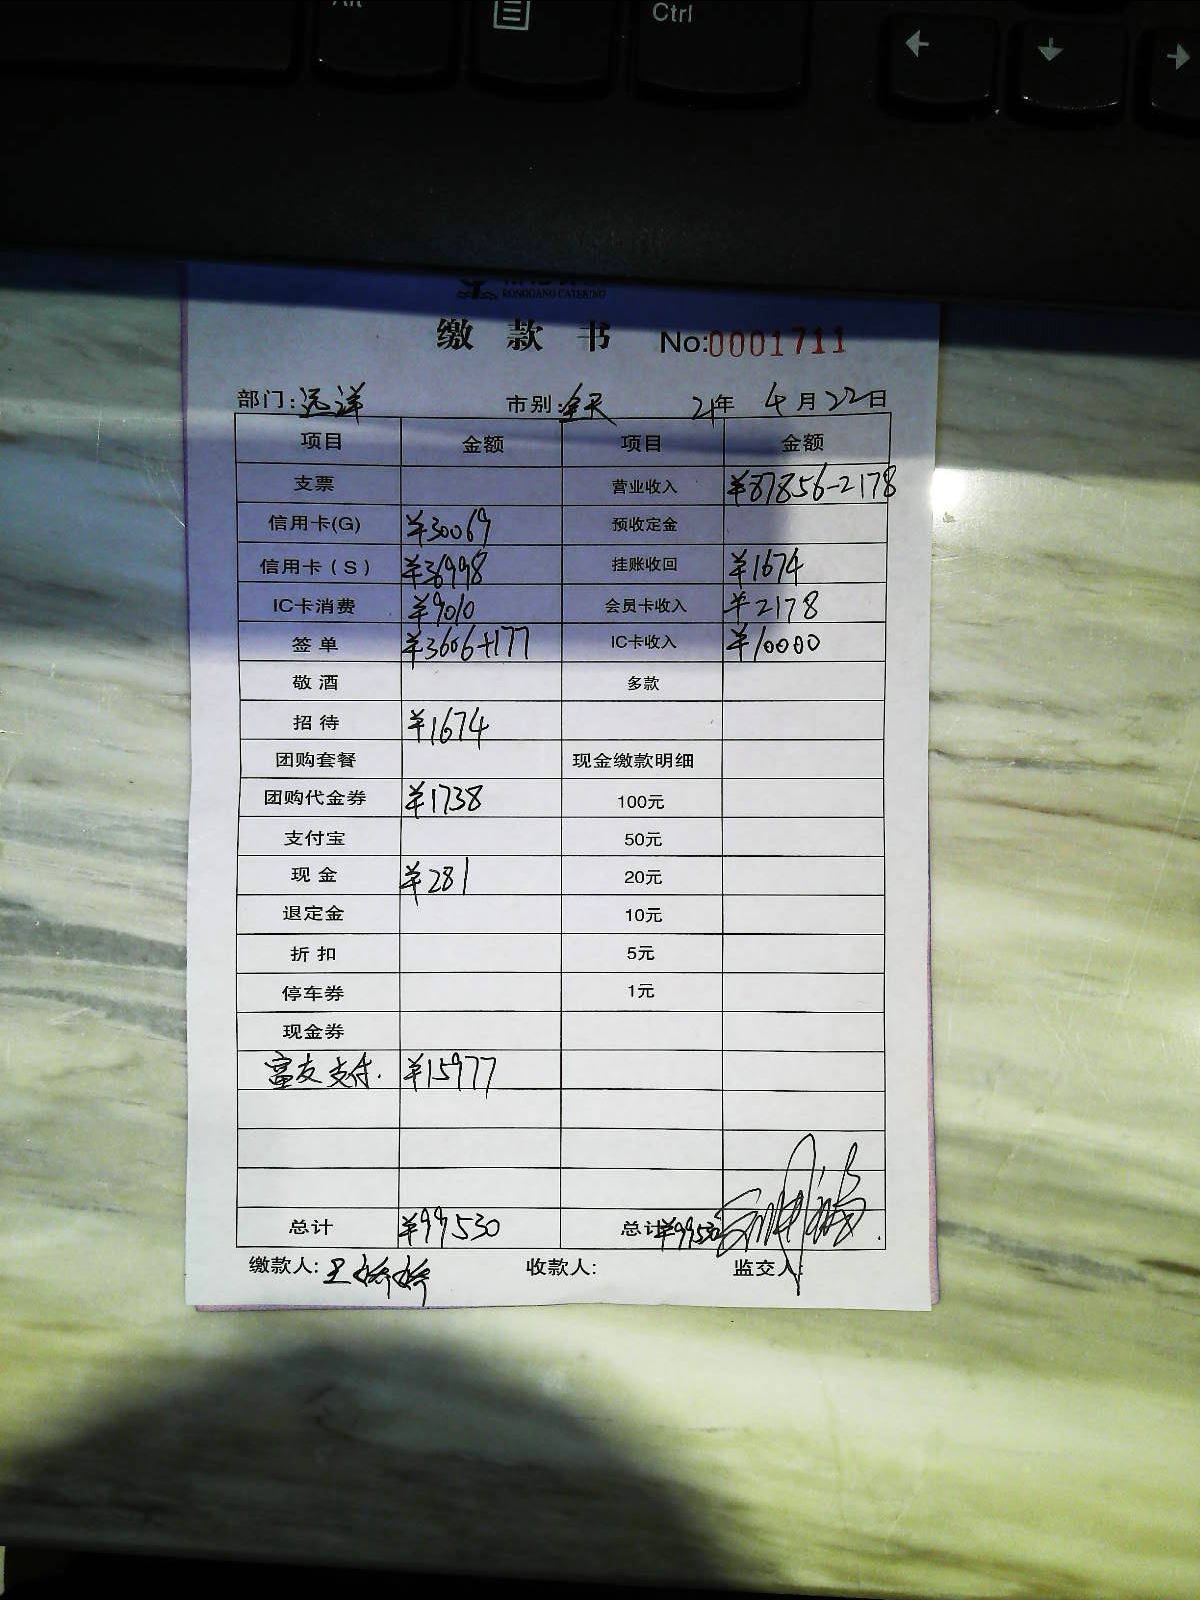 Alt
Ctrl
RONGGANG CATERING
缴 款 书 No:0001711
部门:远洋 市别:全天 21年 4月22日
项目 金额 项目 金额
支票 营业收入 ¥87856-2178
信用卡(G) ¥30069 预收定金
信用卡(S) ¥36998 挂账收回 ¥1674
IC卡消费 ¥9010 会员卡收入 ¥2178
签单 ¥3606+177 IC卡收入 ¥10000
敬酒 多款
招待 ¥1674
团购套餐 现金缴款明细
团购代金券 ¥1738 100元
支付宝 50元
现金 ¥281 20元
退定金 10元
折扣 5元
停车券 1元
现金券
富友支付. ¥15977
总计 ¥99530 总计 ¥99530
缴款人:王婷婷 收款人: 监交人: